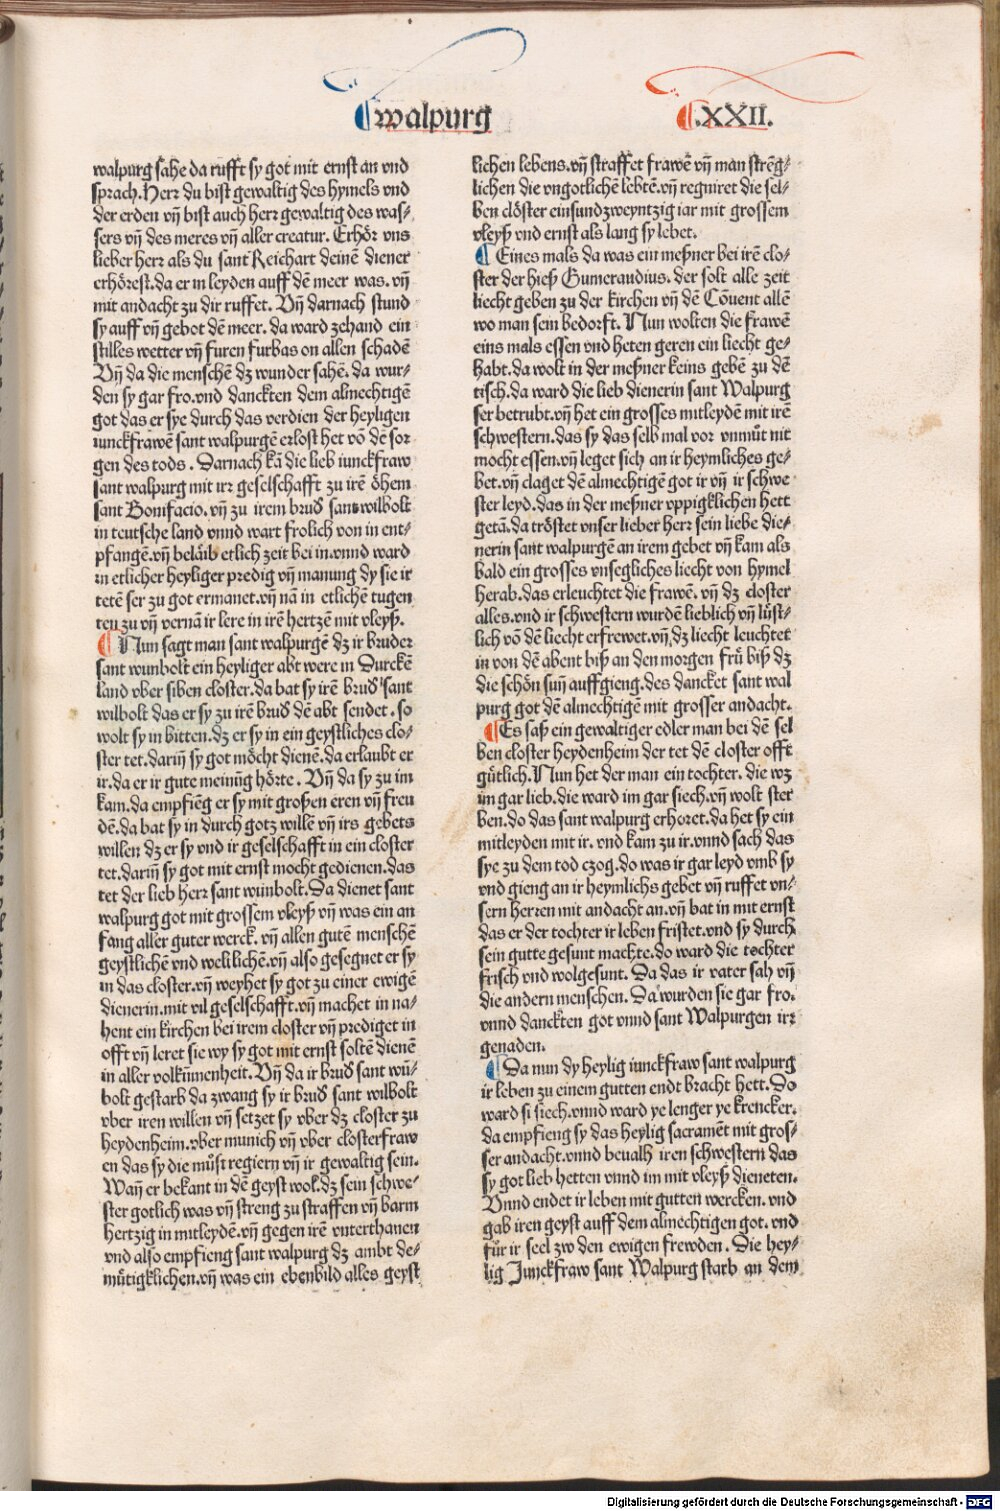 walpurg
.XXII.
walpurg sahe da rufft sy got mit ernst an vnd
sprach. Herr du bist gewaltig des hymels vnd
der erden vñ bist auch herr gewaltig des was⸗
sers vñ des meres vñ aller creatur. Erhör vns
lieber herr als du sant Reichart deinē diener
erhörest. da er in leyden auff dē meer was. vñ
mit andacht zu dir ruffet. Vñ darnach stund
sy auff vñ gebot dē meer. da ward zehand ein
stilles wetter vñ furen furbas on allen schadē
Vñ da die menschē dz wunder sahē. da wur⸗
den sy gar fro. vnd danckten dem almechtigē
got das er sye durch das verdien der heyligen
iunckfrawē sant walpurgē erlost het vō dē sor
gen des tods. Darnach kā die lieb iunckfraw
sant walpurg mit irr geselschafft zu irē öhem
sant Bonifacio. vñ zu irem brud̉ sant wilbolt
in teutsche land vnnd wart frolich von in ent⸗
pfangē. vñ beläib etlich zeit bei in. vnnd ward
in etlicher heyliger predig vñ manung dy sie ir
tetē ser zu got ermanet. vñ nā in etlichē tugen
ten zu vñ vernā ir lere in irē hertzē mit vleyß.
Nun sagt man sant walpurgē dz ir bruder
sant wunbolt ein heyliger abt were in Durckē
land vber siben closter. da bat sy irē brud̉ sant
wilbolt das er sy zu irē brud̉ dē abt sendet. so
wolt sy in bitten. dz er sy in ein geystliches clo⸗
ster tet. dariñ sy got möcht dienē. da erlaubt er
ir. da er ir gute meinūg hörte. Vñ da sy zu im
kam. da empfiēg er sy mit großen eren vñ freu
dē. da bat sy in durch gotz willē vñ irs gebets
willen dz er sy vnd ir geselschafft in ein closter
tet. dariñ sy got mit ernst mocht gedienen. das
tet der lieb herr sant wunbolt. Da dienet sant
walpurg got mit grossem vleyß vñ was ein an
fang aller guter werck. vñ allen gutē menschē
geystlichē vnd weltlichē. vñ also gesegnet er sy
in das closter. vñ weyhet sy got zu einer ewigē
dienerin. mit vil geselschafft. vñ machet in na⸗
hent ein kirchen bei irem closter vñ prediget in
offt vñ leret sie wy sy got mit ernst soltē dienē
in aller volkūmenheit. Vñ da ir brud̉ sant wū⸗
bolt gestarb da zwang sy ir brud̉ sant wilbolt
vber iren willen vñ setzet sy vber dz closter zu
heydenheim. vber munich vñ vber closterfraw
en das sy die můst regiern vñ ir gewaltig sein.
Wañ er bekant in dē geyst wol. dz sein schwe⸗
ster gotlich was vñ streng zu straffen vñ barm
hertzig in mitleydē. vñ gegen irē vnterthanen
vnd also empfieng sant walpurg dz ambt de⸗
mütigklichen. vñ was ein ebenbild alles geyst
lichen lebens. vñ straffet frawē vñ man strēg⸗
lichen die vngotlichē lebtē. vñ regniret die sel⸗
ben clöster einsundzweyntzig iar mit grossem
vleyß vnd ernst als lang sy lebet.
Eines mals da was ein meßner bei irē clo⸗
ster der hieß Gumeraudius. der solt alle zeit
liecht geben zu der kirchen vñ dē Cōuent allē
wo man sein bedorft. Nun wolten die frawē
eins mals essen vnd heten geren ein liecht ge⸗
habt. da wolt in der meßner keins gebē zu dē
tisch. da ward die lieb dienerin sant Walpurg
ser betrubt. vñ het ein grosses mitleydē mit irē
schwestern. das sy das selb mal vor vnmůt nit
mocht essen. vñ leget sich an ir heymliches ge⸗
bet. vñ claget dē almechtigē got ir vñ ir schwe
ster leyd. das in der meßner vppigklichen hett
getā. da tröstet vnser lieber herr sein liebe die⸗
nerin sant walpurgē an irem gebet vñ kam als
bald ein grosses vnsegliches liecht von hymel
herab. das erleuchtet die frawē. vñ dz closter
alles. vnd ir schwestern wurdē lieblich vñ lüst⸗
lich vō dē liecht erfrewet. vñ dz liecht leuchtet
in von dē abent biß an den morgen frů biß dz
die schön suñ auffgieng. des dancket sant wal
purg got dē almechtigē mit grosser andacht.
Es saß ein gewaltiger edler man bei dē sel
ben closter heydenheim der tet dē closter offt
gütlich. Nun het der man ein tochter. die wz
im gar lieb. die ward im gar siech. vñ wolt ster
ben. do das sant walpurg erhoret. da het sy ein
mitleyden mit ir. vnd kam zu ir. vnnd sach das
sye zu dem tod czog. do was ir gar leyd vmb sy
vnd gieng an ir heymlichs gebet vñ ruffet vn⸗
sern herren mit andacht an. vñ bat in mit ernst
das er der tochter ir leben fristet. vnd sy durch
sein gutte gesunt machte. do ward die tochter
frisch vnd wolgesunt. Da das ir vater sah vñ
die andern menschen. Da wurden sie gar fro.
vnnd danckten got vnnd sant Walpurgen irr
genaden.
Da nun dy heylig iunckfraw sant walpurg
ir leben zu einem gutten endt bracht hett. Do
ward si siech. vnnd ward ye lenger ye krencker.
da empfieng sy das heylig sacramēt mit gros⸗
ser andacht. vnnd beualh iren schwestern das
sy got lieb hetten vnnd im mit vleyß dieneten.
Vnnd endet ir leben mit gutten wercken. vnd
gab iren geyst auff dem almechtigen got. vnd
für ir seel zw den ewigen frewden. Die hey⸗
lig Junckfraw sant Walpurg starb an dem
Digitalisierung gefördert durch die Deutsche Forschungsgemeinschaft - DFG